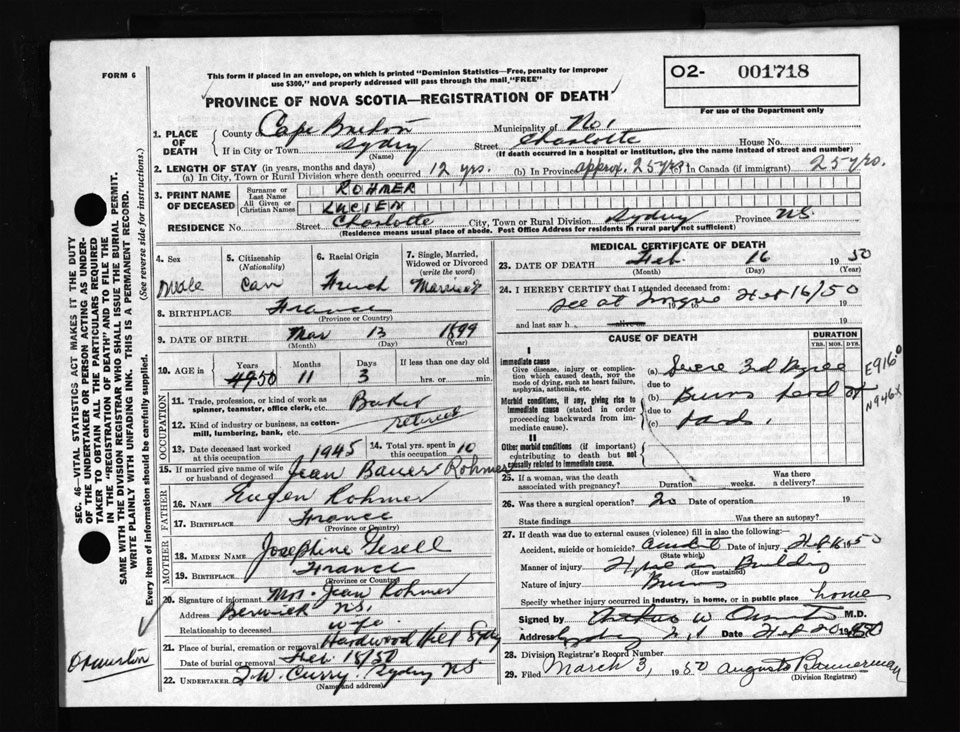 FORM 6
This form if placed in an envelope, on which is printed "Dominion Statistics—Free, penalty for improper
use $300," and properly addressed will pass through the mail,"FREE"
O2- 001718
For use of the Department only
PROVINCE OF NOVA SCOTIA—REGISTRATION OF DEATH
1. PLACE OF DEATH
County of Cape Breton Municipality of No. 1
If in City or Town Sydney Street Charlotte House No.
(Name) (If death occurred in a hospital or institution, give the name instead of street and number)
2. LENGTH OF STAY (in years, months and days)
(a) In City, Town or Rural Division where death occurred 12 yrs. (b) In Province approx. 25 yrs. (c) In Canada (if immigrant) 25 yrs.
3. PRINT NAME OF DECEASED
Surname or Last Name ROHMER
All Given or Christian Names LUCIEN
RESIDENCE No. Street Charlotte City, Town or Rural Division Sydney Province N.S.
(Residence means usual place of abode. Post Office Address for residents in rural parts not sufficient)
4. Sex
Male
5. Citizenship
(Nationality)
Can
6. Racial Origin
French
7. Single, Married,
Widowed or Divorced
(write the word)
Married
8. BIRTHPLACE France
(Province or Country)
9. DATE OF BIRTH Mar 13 1899
(Month) (Day) (Year)
10. AGE in
Years Months Days If less than one day old
49 50 11 3 hrs. or min.
OCCUPATION
11. Trade, profession, or kind of work as
spinner, teamster, office clerk, etc. Baker
12. Kind of industry or business, as cotton-
mill, lumbering, bank, etc. retired
13. Date deceased last worked
at this occupation 1945
14. Total yrs. spent in
this occupation 10
15. If married give name of wife
or husband of deceased Jean Bauer Rohmer
FATHER
16. NAME Eugen Rohmer
17. BIRTHPLACE France
(Province or Country)
MOTHER
18. MAIDEN NAME Josephine Gesell
19. BIRTHPLACE France
(Province or Country)
20. Signature of informant Mrs. Jean Rohmer
Address Berwick N.S.
Relationship to deceased wife
21. Place of burial, cremation or removal Hardwood Hill Sydney
Date of burial or removal Feb. 18/50
22. UNDERTAKER T.W. Curry, Sydney N.S
(Name and address)
MEDICAL CERTIFICATE OF DEATH
23. DATE OF DEATH Feb. 16 1950
(Month) (Day) (Year)
24. I HEREBY CERTIFY that I attended deceased from:
see at morgue Feb 16/50
19 to 19
and last saw h alive on 19
CAUSE OF DEATH
DURATION
YRS. MOS. DYS.
I
Immediate cause
Give disease, injury or complica-
tion which caused death, NOT the
mode of dying, such as heart failure,
asphyxia, asthenia, etc.
Morbid conditions, if any, giving rise to
immediate cause (stated in order
proceeding backwards from im-
mediate cause).
II
Other morbid conditions (if important)
contributing to death but not
causally related to immediate cause.
(a) Severe 3rd Degree
due to
(b) Burns
due to
(c)
E9160
N946X
25. If a woman, was the death
associated with pregnancy? Duration weeks. Was there
a delivery?
26. Was there a surgical operation? no Date of operation 19
State findings Was there an autopsy?
27. If death was due to external causes (violence) fill in also the following:
Accident, suicide or homicide? Date of injury Feb 16 1950
(State which)
Manner of injury Building
(How sustained)
Nature of injury Burns
Specify whether injury occurred in industry, in home, or in public place home
Signed by Arthur W M.D.
Address Sydney N.S Date Feb 20 1950
28. Division Registrar's Record Number
29. Filed March 3, 1950 Bannerman
(Division Registrar)
SEC. 46—VITAL STATISTICS ACT MAKES IT THE DUTY
OF THE UNDERTAKER OR PERSON ACTING AS UNDER-
TAKER TO OBTAIN ALL THE PARTICULARS REQUIRED
IN THE "REGISTRATION OF DEATH" AND TO FILE THE
SAME WITH THE DIVISION REGISTRAR WHO SHALL ISSUE THE BURIAL PERMIT.
WRITE PLAINLY WITH UNFADING INK. THIS IS A PERMANENT RECORD.
Every item of information should be carefully supplied. (See reverse side for instructions.)